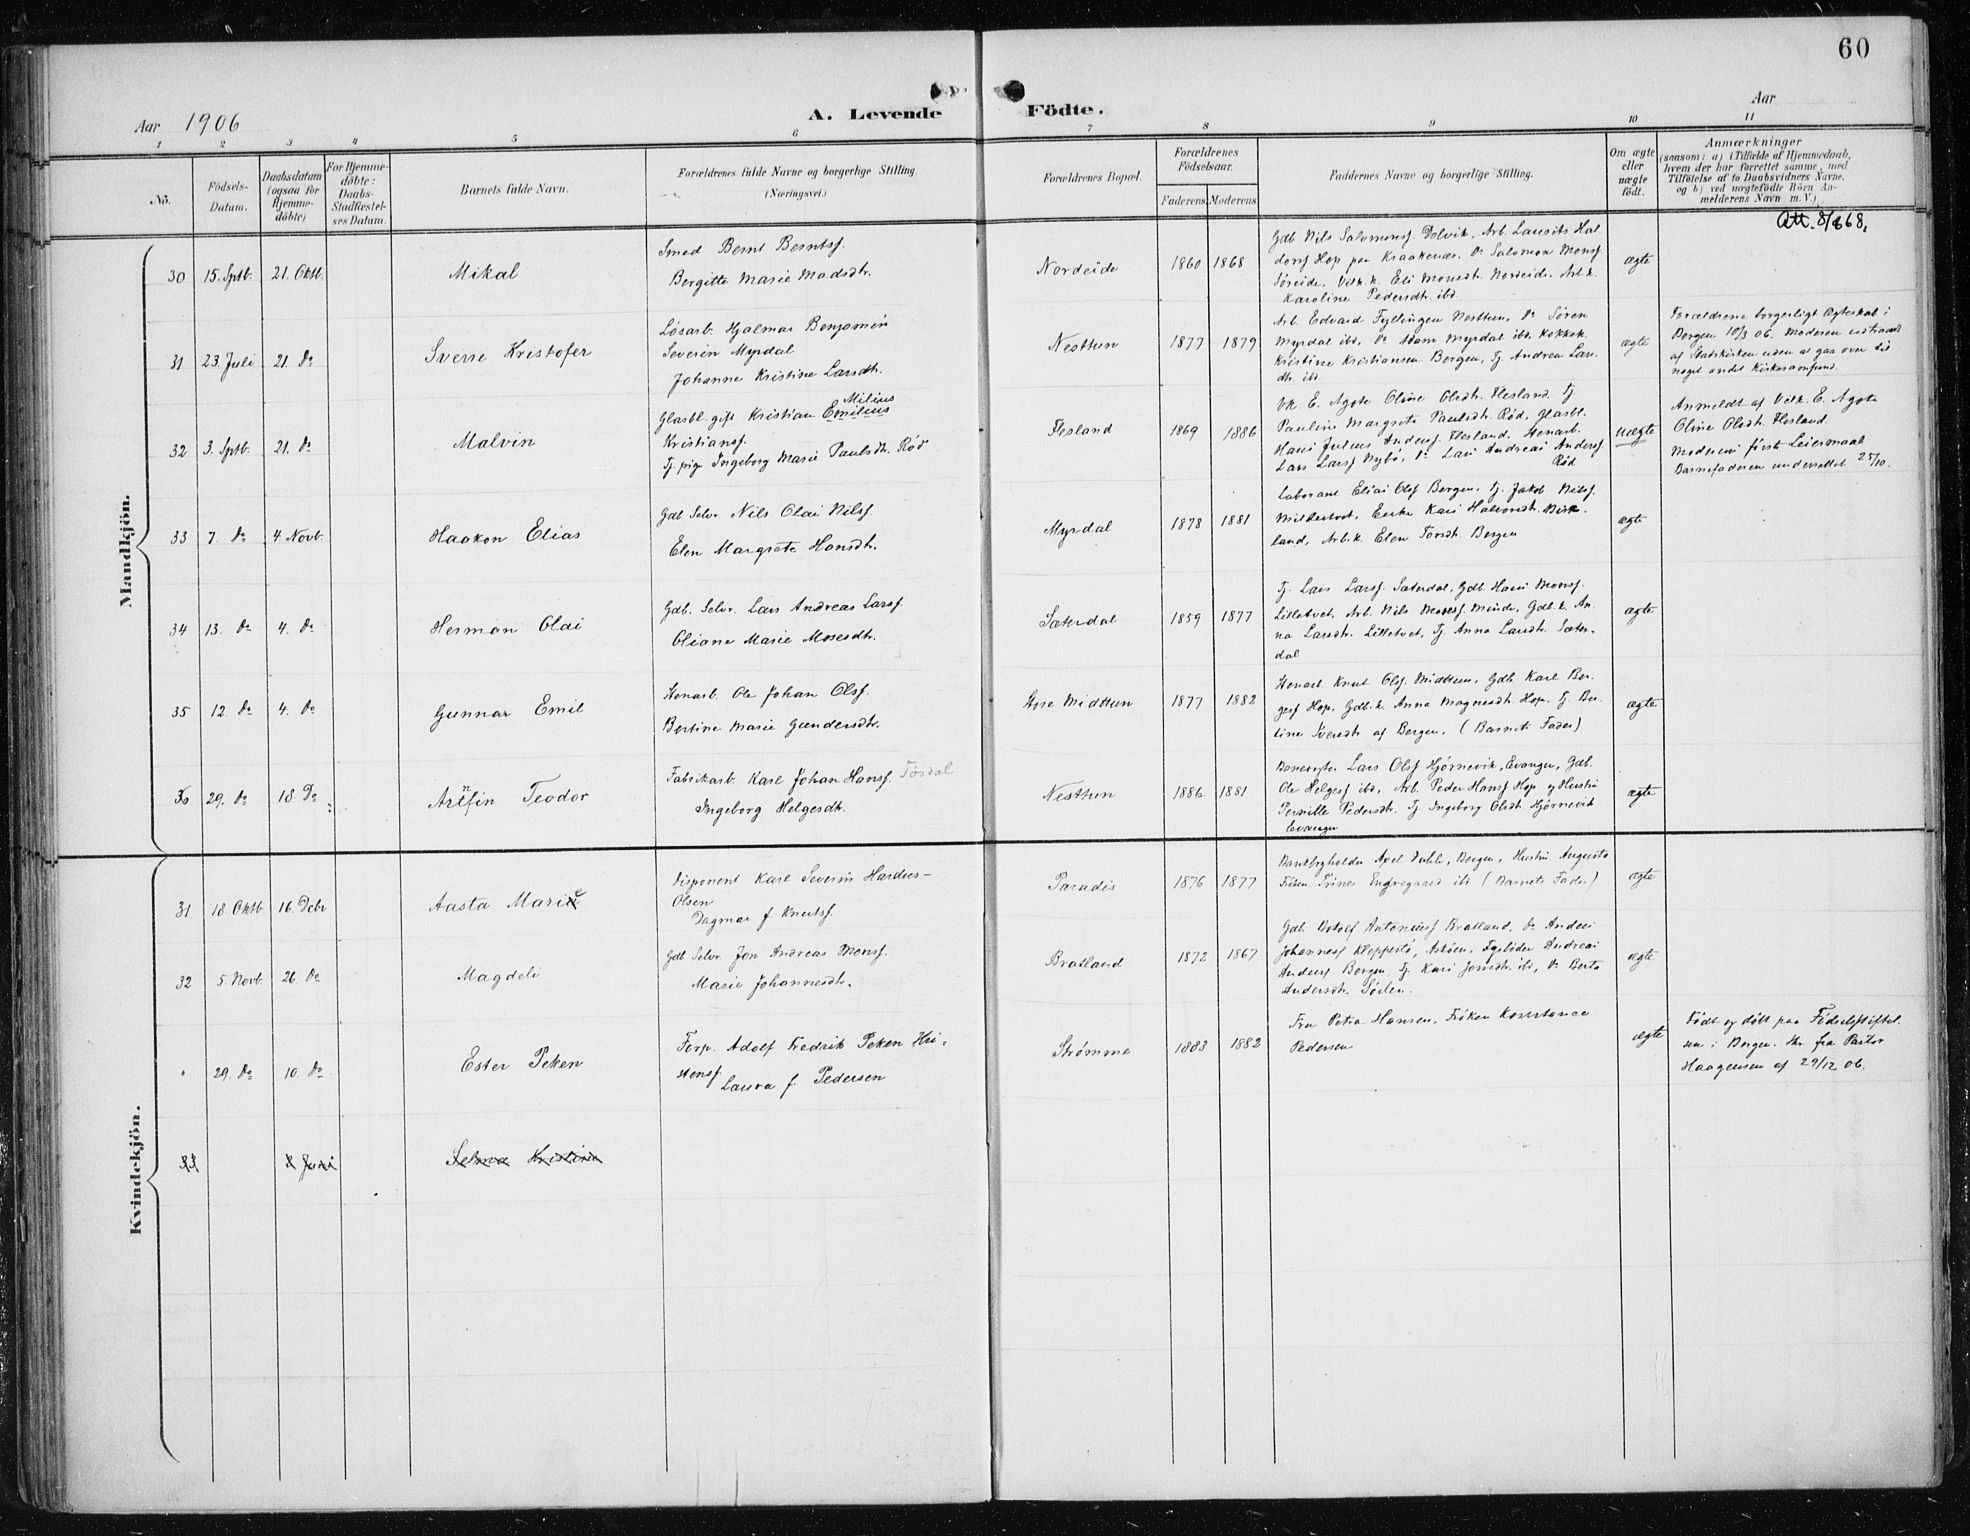 60
Aar 1906
A. Levende Födte.
Aar
1 2 3 4 5 6 7 8 9 10 11
No.
Födsels-
Datum.
Daabsdatum
(ogsaa for
Hjemme-
döbte)
For Hjemme-
döbte:
Daabs-
Stadfæstel-
ses Datum.
Barnets fulde Navn.
Forældrenes fulde Navne og borgerlige Stilling
(Næringsvei.)
Forældrenes Bopæl.
Forældrenes
Födselsaar.
Faderens. Moderens
Faddernes Navne og borgerlige Stilling.
Om ægte
eller
uægte
födt.
Anmærkninger
(saasom: a) i Tilfælde af Hjemmedaab,
hvem der har forrettet samme, med
Tilföielse af to Daabsvidners Navne,
og b) ved uægtefödte Börn An-
melderens Navn m. V.)
Mandkjön.
30 15. Sptb. 21. Oktb.
Mikal
Smed Bernt Berntsf.
Bergitte Marie Madsdtr.
Nordeide 1860 1868
Gdb Nils Salomonsf. Dolvik, Arb. Lauritz Hal
dorsf Hop paa Kraakenes. Do Salomon Monsf
Søreide, Vilk. k. Eli Monsdtr. Nordeide. Arb. k.
Karoline Pedersdtr. ibd.
ægte
Att. 8/8 68.
31 23. Juli 21. Do
Sverre Kristofer
Løsarb. Hjalmar Benjamin
Severin Myrdal
Johanne Kristine Larsdtr.
Nesttun 1877 1879
Arb. Edvard Fyllingen Nesttun, Do Søren
Myrdal ibd, Do Adam Myrdal ibd.
Kristine Kristiansen Bergen, Tj. Andrea Lars
dtr. ibd.
ægte
Forældrene borgerligt Ægteskab i
Bergen 10/3 06. Moderen udtraadt
af Statskirken uden at gaa over til
noget andet Kirkesamfund.
32 3. Sptb. 21. Do
Malvin
Milius
Glasbl. gift Kristian Emilius
Kristiansf.
Tj. pige Ingeborg Marie Paulsdtr. Rød
Flesland 1869 1886
Vk. E. Agote Oline Olsdtr. Flesland. Tj.
Pauline Margrete Paulsdtr. Rød, Glasbl.
Hans Julius Andersf. Flesland, Stenarb.
Lars Larsf Nybø, Do Lars Andreas Andersf
Rød
uægte
Anmeldt af Vilk. E. Agota
Oline Olsdtr. Flesland.
Moderens første Leiermaal
Barnefaderen underrettet 25/10.
33 7. Do 4 Novb.
Haakon Elias
Gdb. Selv. Nils Olai Nilsf
Elen Margrete Hansdtr.
Myrdal 1878 1881
Laborant Elias Olsf Bergen, Tj. Jakob Nilsf.
Mildetvet, Enke Kari Halvordtr. Birke
land, Arb. k. Elen Tordtr. Bergen
ægte
34 13. Do 4. Do
Herman Olai
Gdb. Selv. Lars Andreas Larsf.
Oliane Marie Mosesdtr.
Sæterdal 1859 1877
Tj. Lars Larsf. Sæterdal, Gdb. Hans Monsf.
Lilletvet, Arb. Nils Mosesf Minde, Gdb. k. An
na Larsdtr. Lilletvet, Tj. Anna Larsdtr. Sæter-
dal
ægte
35 12. Do 4. Do
Gunnar Emil
Stenarb. Ole Johan Olsf.
Bertine Marie Gundersdtr.
Store Midttun 1877 1882
Stenarb. Knut Olsf. Midttun, Gdb. Karl Ber
gesf Hop. Gdb. k. Anna Magnesdtr. Hop. Tj. Ber
tine Ivendtr af Bergen. (Barnets Fader)
ægte
36 29. Do 18. Do
Arnfin Teodor
Fabrikarb. Karl Johan Hansf. Tøsdal
Ingeborg Helgesdtr.
Nesttun 1886 1881
Lars Olsf Hjørnevik, Evanger, Gdb.
Ole Helgesf ibd, Arb. Peder Hansf Hop og Hustru
Pernille Pedersdtr. Tj. Ingeborg Olsdtr. Hjørnevik
Evanger
ægte
Kvindekjön.
31 18. Oktb 16. Debr
Aasta Marie
Disponent Karl Severin Hardus-
Olsen
Dagmar f. Knutsf.
Paradis 1876 1877
Axel Dahle, Bergen, Hustru Augusta
Frøken Trine Engegaard ib (Barnets Fader)
ægte
32 5. Novb. 26. Do
Magdeli
Gdb Selv. Jon Andreas Monsf.
Marie Johannesdtr.
Bratland 1872 1867
Gdb. Botolf Antoniusf Bratland, Do Anders
Johannesf Kleppestø, Askøen, Andreas
Andersf Bergen, Tj. Kari Jonsdtr. ibd, Do Berta
Andersdtr. Søilen.
ægte
" 29. Do 10. Do
Ester Peken
Forp. Adolf Fredrik Peken Kri-
stensf.
Laura f. Pedersen
Strømme 1883 1882
Fru Petra Hansen, Frøken Konstance
Pedersen
ægte
Født og døbt paa Fødselsstiftel
sen i Bergen. Skr. fra Pastor
Haagensen af 29/12 06.
33 Juni
Selma Kristine